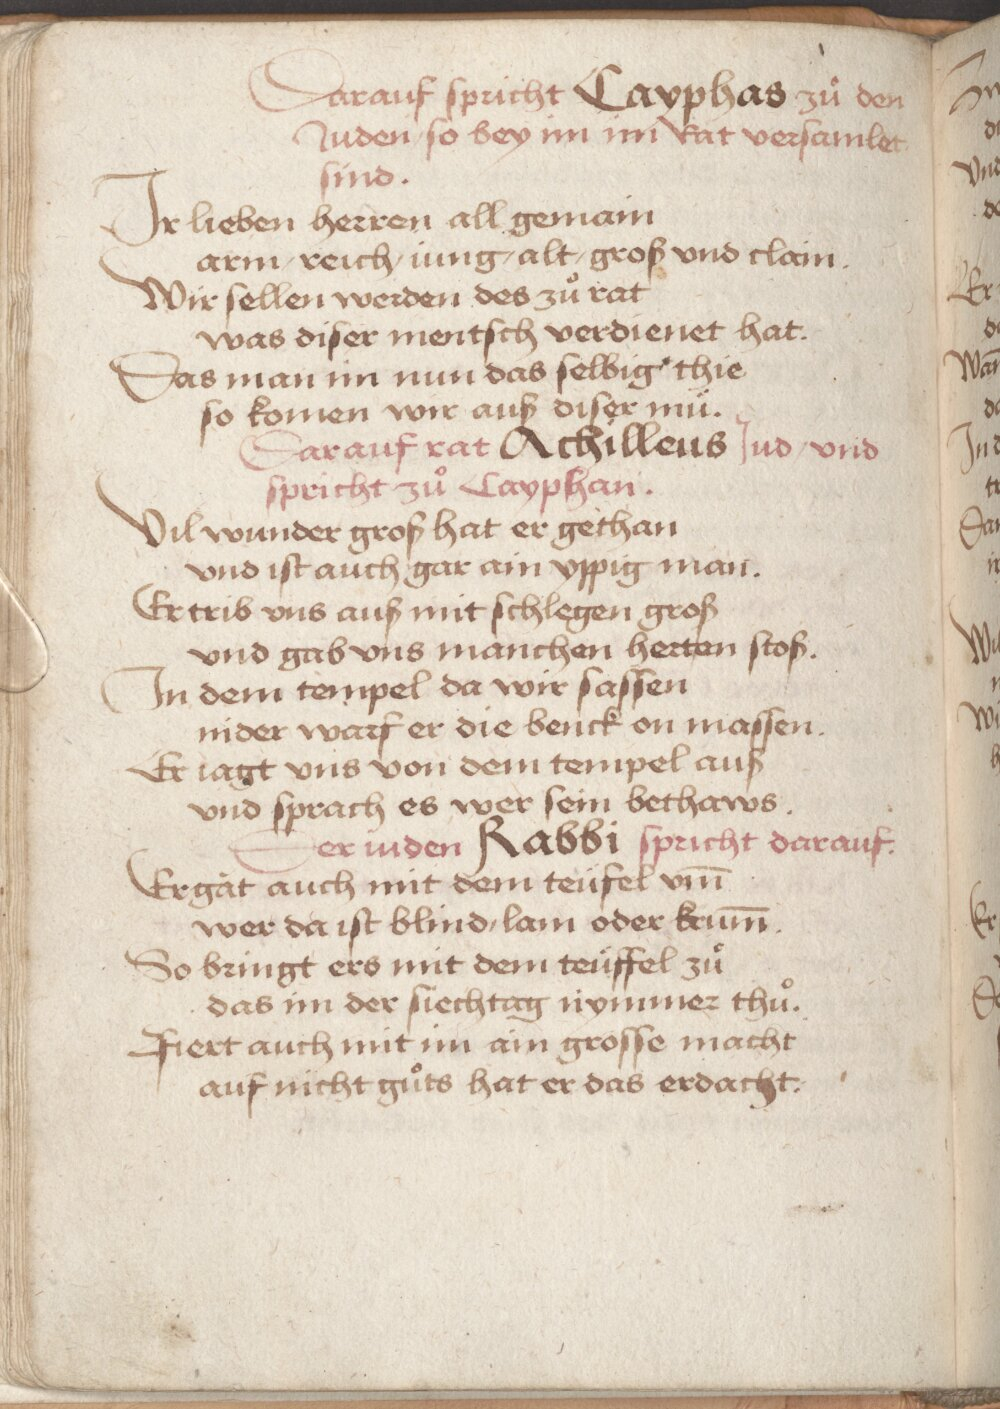 Darauf spricht Cayphas zuͦ den
Juden / so bey im im Rat versamlet
sind.
Ir lieben herren all gemain
arm / reich / iung / alt / groß vnd clain.
Wir sellen werden des zuͦ rat
was diser mentsch verdienet hat.
Das man im nun das selbig thie
so komen wir auß diser mü.
Darauf rat Achilleus Jud / vnd
spricht zuͦ Cayphan.
Vil wunder groß hat er gethan
vnd ist auch gar ain vppig man.
Er trib vns auß mit schlegen groß
vnd gab vns manchen herten stoß.
In dem tempel da wir sassen
nider warf er die benck on massen.
Er iagt vns von dem tempel auß
vnd sprach es wer sein bethaws.
Der iuden Rabbi spricht darauf.
Er gat auch mit dem teüfel vm̄
wer da ist blind / lam oder krum̄.
So bringt ers mit dem teüffel zuͦ
das im der siechtag nymmer thuͦ.
Fiert auch mit im ain grosse macht
auf nicht guͦts hat er das erdacht.